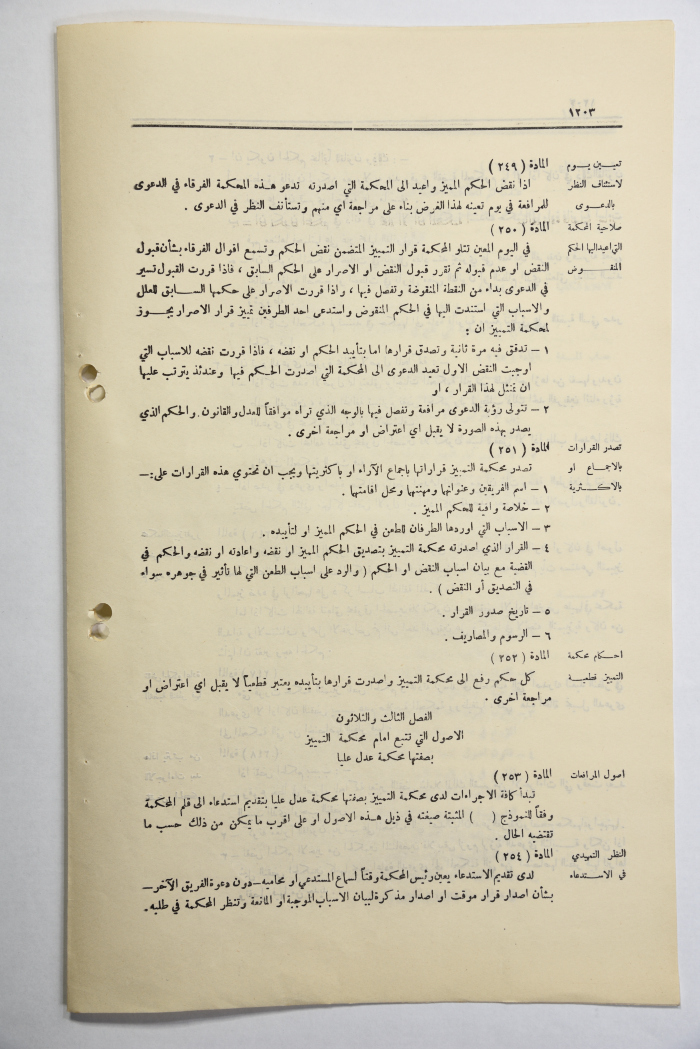 ١٢٠٣
تعيين يوم المادة ( ٢٤٩ )
لاستئناف النظر اذا نقض الحكم المميز واعيد الى المحكمة التي اصدرته تدعو هذه المحكمة الفرقاء في الدعوى
بالدعوى للمرافعة في يوم تعينه لهذا الغرض بناء على مراجعة اي منهم وتستأنف النظر في الدعوى .
صلاحية المحكمة المادة ( ٢٥٠ )
التي اعيد اليها الحكم في اليوم المعين تتلو المحكمة قرار التمييز المتضمن نقض الحكم وتسمع اقوال الفرقاء بشأن قبول
المنقوض النقض او عدم قبوله ثم تقرر قبول النقض او الاصرار على الحكم السابق ، فاذا قررت القبول تسير
في الدعوى بداء من النقطة المنقوضة وتفصل فيها ، واذا قررت الاصرار على حكمها السابق للعلل
والاسباب التي استندت اليها في الحكم المنقوض واستدعى احد الطرفين تمييز قرار الاصرار يجوز
لمحكمة التمييز ان :
١ – تدقق فيه مرة ثانية وتصدق قرارها اما بتأييد الحكم او نقضه ، فاذا قررت نقضه للاسباب التي
اوجبت النقض الاول تعيد الدعوى الى المحكمة التي اصدرت الحكم فيها وعندئذ يترتب عليها
ان تمتثل لهذا القرار ، او
٢ – تتولى رؤية الدعوى مرافعة وتفصل فيها بالوجه الذي تراه موافقاً للعدل والقانون . والحكم الذي
يصدر بهذه الصورة لا يقبل اي اعتراض او مراجعة اخرى .
تصدر القرارات المادة ( ٢٥١ )
بالاجماع او تصدر محكمة التمييز قراراتها باجماع الآراء او باكثريتها ويجب ان تحتوي هذه القرارات على :–
بالاكثرية ١ – اسم الفريقين وعنوانها ومهنتها ومحل اقامتها .
٢ – خلاصة وافية للحكم المميز .
٣ – الاسباب التي اوردها الطرفان للطعن في الحكم المميز او لتأييده .
٤ – القرار الذي اصدرته محكمة التمييز بتصديق الحكم المميز او نقضه واعادته او نقضه والحكم في
القضية مع بيان اسباب النقض او الحكم ( والرد على اسباب الطعن التي لها تأثير في جوهره سواء
في التصديق أو النقض ) .
٥ – تاريخ صدور القرار .
٦ – الرسوم والمصاريف .
احكام محكمة المادة ( ٢٥٢ )
التمييز قطعية كل حكم رفع الى محكمة التمييز واصدرت قرارها بتأييده يعتبر قطعياً لا يقبل اي اعتراض او
مراجعة اخرى .
الفصل الثالث والثلاثون
الاصول التي تتبع امام محكمة التمييز
بصفتها محكمة عدل عليا
اصول المرافعات المادة ( ٢٥٣ )
تبدأ كافة الاجراءات لدى محكمة التمييز بصفتها محكمة عدل عليا بتقديم استدعاء الى قلم المحكمة
وفقاً للنموذج ( ) المثبتة صيغته في ذيل هذه الاصول او على اقرب ما يمكن من ذلك حسب ما
تقتضيه الحال .
النظر التمهيدي المادة ( ٢٥٤ )
في الاستدعاء لدى تقديم الاستدعاء يعين رئيس المحكمة وقتاً لسماع المستدعي او محاميه – دون دعوة الفريق الآخر –
بشأن اصدار قرار موقت او اصدار مذكرة لبيان الاسباب الموجبة او المانعة وتنظر المحكمة في طلبه .